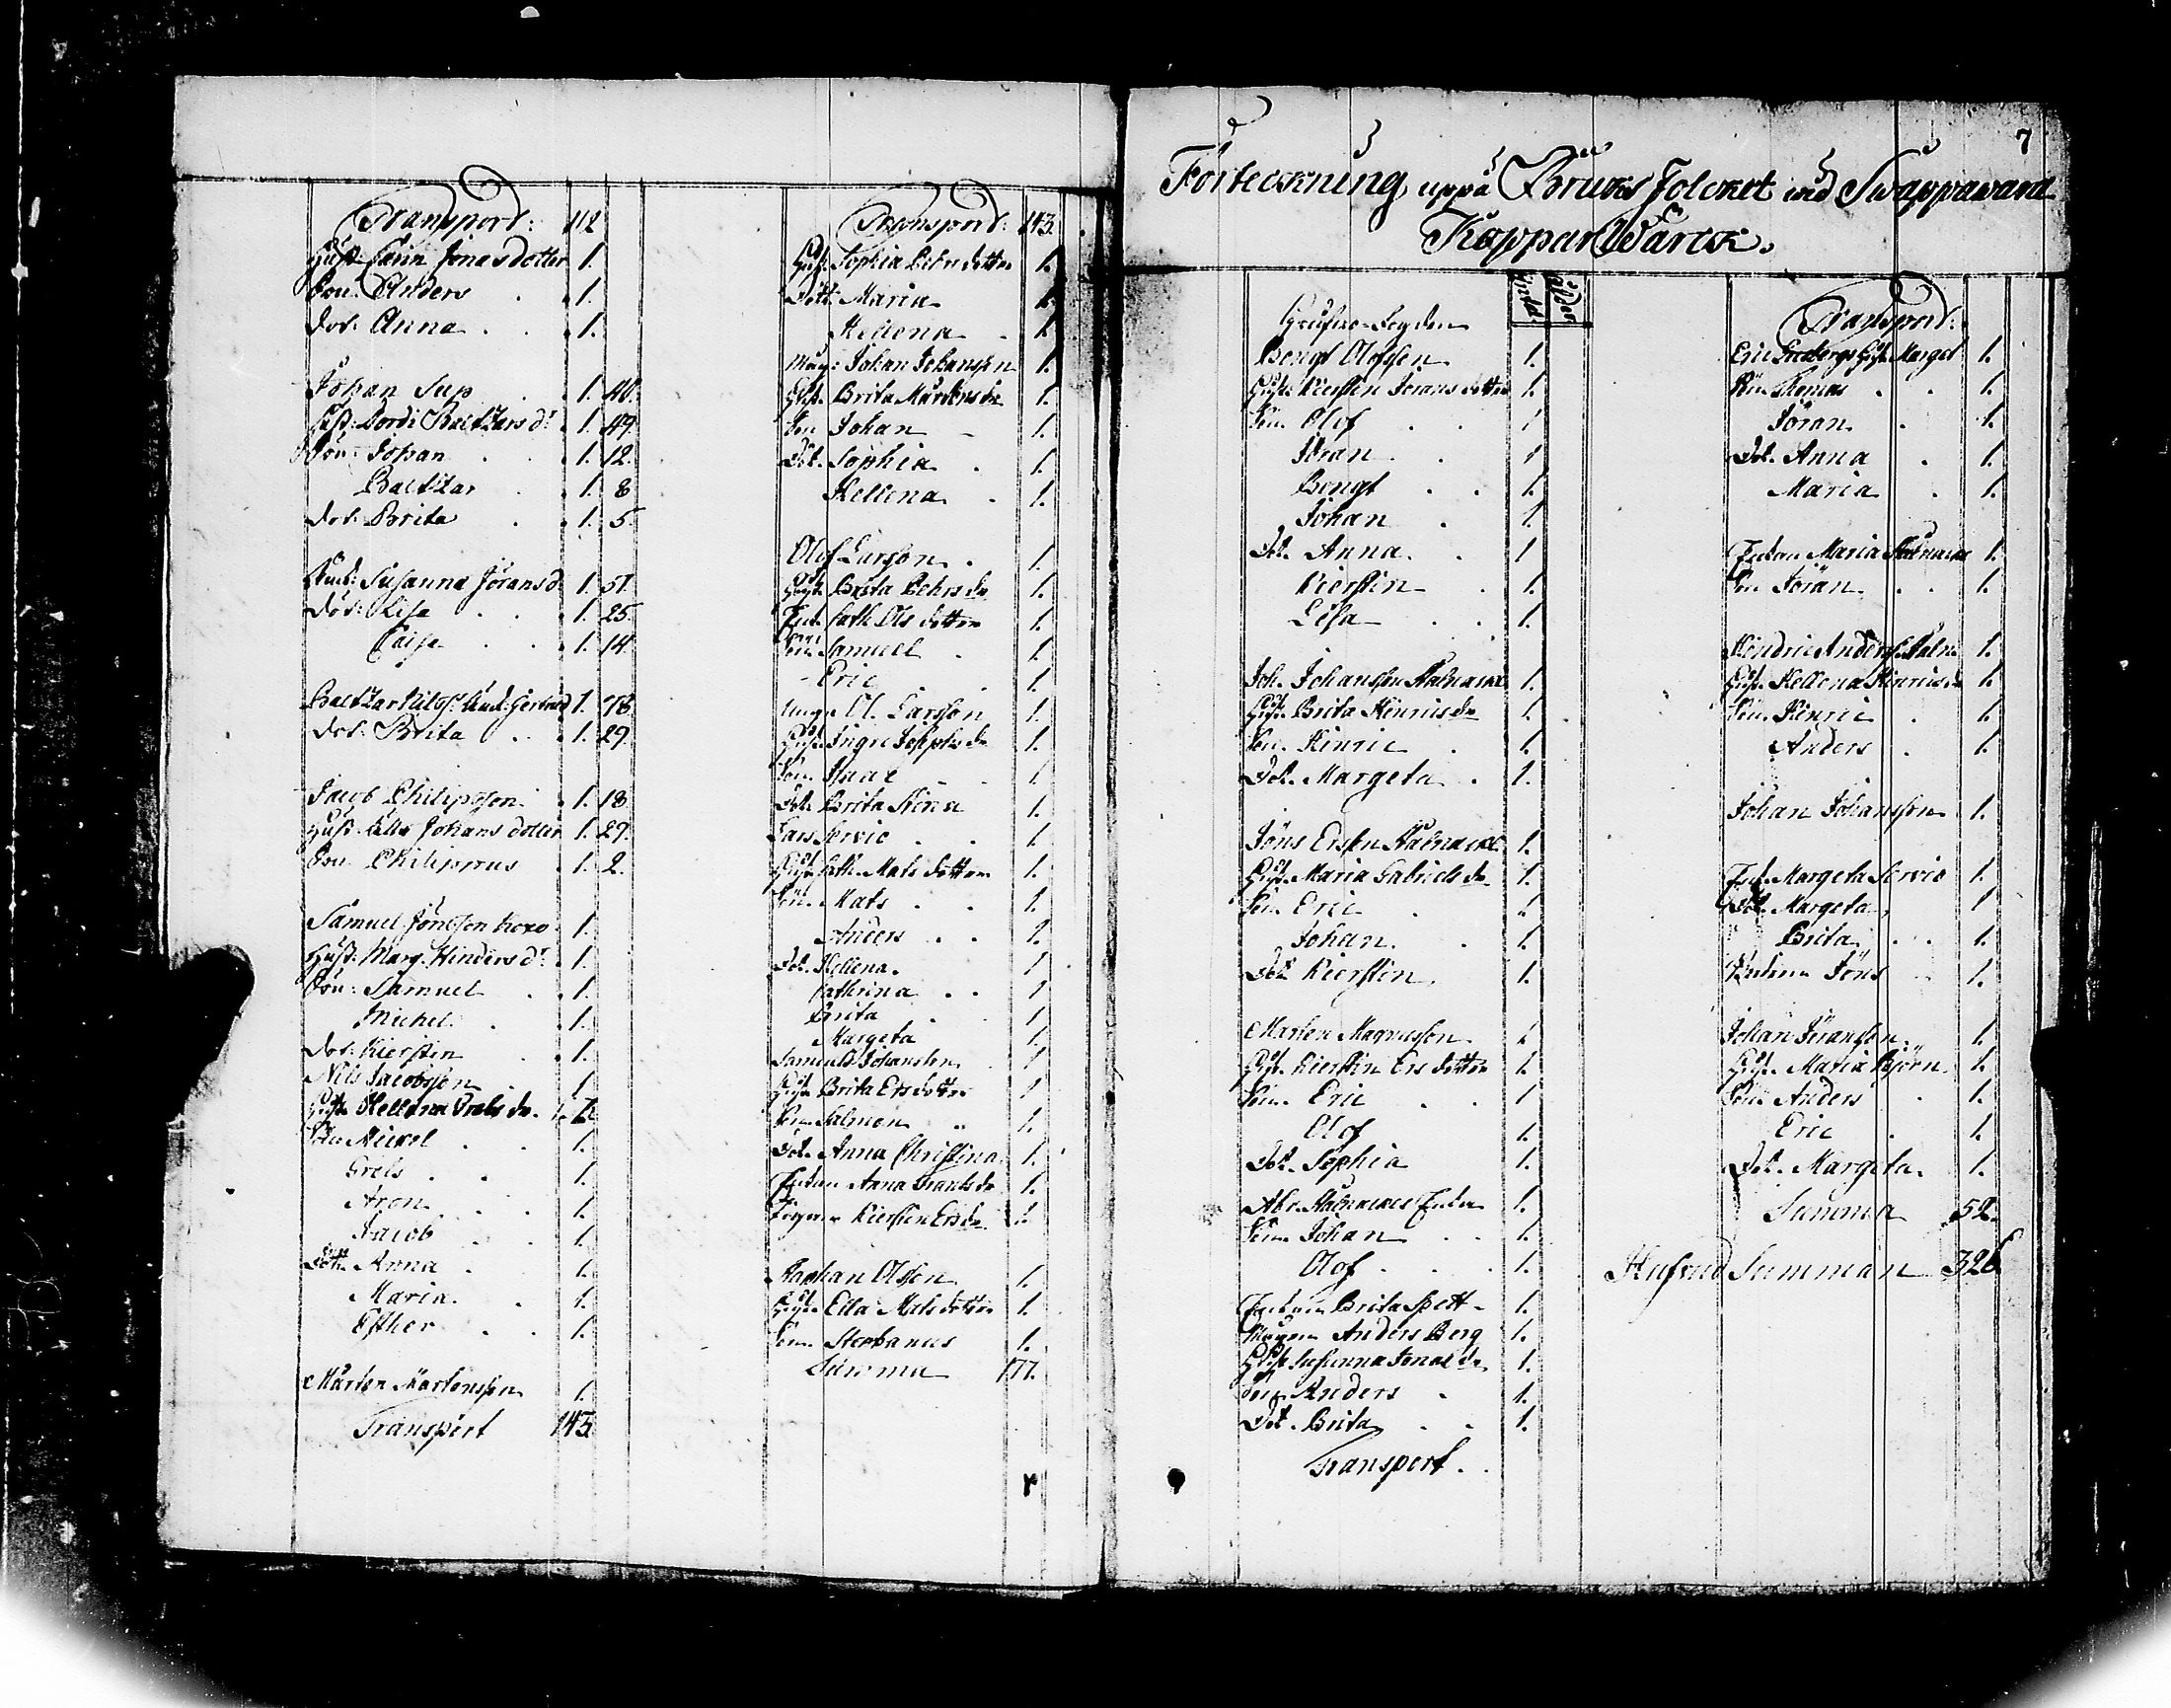 Transport: 112
Hust: Carin Jonasdotter 1.
Son. Anders . . 1.
Dot. Anna . . 1.
Johan Sup . 1. 40.
Hust: Bordi Baltzars dr 1. 49.
Son: Johan . . 1. 12.
Baltzar . 1. 8
Dot. Brita . . 1. 5.
Susanna Jöransd. 1. 51.
Dot: Lisa . . 1. 25.
Caisa . . 1. 14.
Baltzar Nilss: Enk: Gertrud 1. 78.
Dot: Brita . . 1. 29.
Jacob Philipsson . 1. 18.
Hust: Johans dotter 1. 29.
Son Philippus . 1. 2.
Samuel Jönsson 1.
Hust: Marg. Hinders dr. 1.
Son: Samuel . 1.
Michel . . 1.
Dot: Kierstin . 1.
Nils Jacobsson . 1.
Hust. Hellena dr. 1.
Son Mickel . . 1.
Grels . . 1.
Aron . . 1.
Jacob . . 1.
Dott. Anna . 1.
Maria . . 1.
Esther . . 1.
Mårten Mårtensson 1.
Transport 143.
Transport: 143.
Hust: Sophia Pehrsdotter 1.
Dott: Maria 1.
Hellena . 1.
Måg: Johan Johansson 1.
Hust. Brita Mårtens dr. 1.
Son Johan - 1.
Dot. Sophia . 1.
Hellena . 1.
Olof Larsson . 1.
Hust. Brita Pehrs dr. 1.
Enk. Cath. Ols dotter 1.
Son Samuel . 1.
Eric . . 1.
Ol. Larsson 1.
Hust. Ingre Josephs dr 1.
Son Isaac . . 1.
Dot. Brita Stina 1.
Lars Servio . . 1.
Hust. Cath. Mats dotter 1.
Son. Mats . . 1.
Anders . . 1.
Dot. Hellena . 1
Cathrina . . 1
Brita . 1
Margeta 1.
Samuel Johansson 1
Hust. Brita Ersdotter 1
Son Salmon . 1.
Dot. Anna Christina 1.
Enkan Anna dr 1.
Kierstin Ers dr. 1.
Olsson 1.
Hust. Ella Matsdotter 1.
Son Stephanus 1.
Summa 177.
7
Förteckning uppå Bruks Folcket wid Swappawara
Koppar Wärck.
Grufwe-Fogden
Bengt Olofsson 1.
Hust. Kierstin Jörans dotter 1.
Son. Olof . . 1
Jöran . . 1
Bengt . . 1.
Johan . 1.
Dot. Anna . . 1
Kierstin . 1.
Lisa . . 1.
Joh. Johansson Stålnacke 1.
Hust. Brita Hinrics dr 1.
Son. Hinric . 1.
Dot. Margeta . 1.
Jöns Ersson Stålnacke 1.
Hust. Maria Gabriels dr 1.
Son. Eric . 1.
Johan . . 1.
Dot. Kierstin . 1.
Mårten Magnusson 1.
Hust. Kierstin Ers dotter 1.
Son. Eric . . 1
Olof 1.
Dot. Sophia 1.
Abr. Stålnackes Enka 1.
Son. Johan . . 1.
Olof . . . 1.
Enkan Brita Spett - 1.
Mågen Anders Berg 1.
Hust. Susanna Jonæ dr 1.
Son Anders . 1.
Dot. Brita . . 1.
Transport . .
Transport:
Eric Hust. Marget 1.
Son Thomas . . 1.
Jöran . 1.
Dot. Anna . 1.
Maria . 1.
Enkan Maria Stålnacke 1.
Son Jöran . . 1.
Hendric Anderss. 1.
Hust. Hellena Hinrics dr 1.
Son. Hinric . 1.
Anders . 1.
Johan Johansson 1.
Enk. Margeta Servio 1.
Dot. Margeta . 1
Brita . . . 1.
Jöns 1.
Johan Jöransson . 1.
Hust. Maria Björn . 1.
Son Anders . 1.
Eric . 1.
Dot. Margeta . 1.
Summa 52.
Hufvud Summan 326